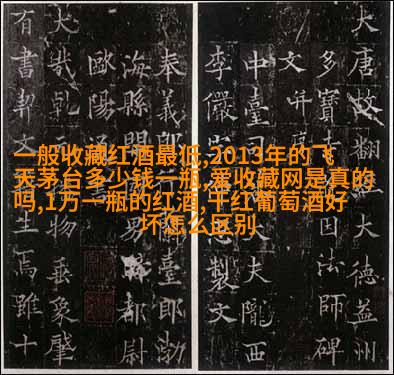 一般收藏红酒最低,2013年的飞
天茅台多少钱一瓶,爱收藏网是真的
吗,1万一瓶的红酒,干红葡萄酒好
坏怎么区别
大唐故翻大德益州
多寶寺因法師碑
文并
中臺司大夫隴西
李儼製文
奉義郎臺郎渤
海縣開男都尉
歐陽通
大哉乾物垂象肇
有書契文生焉雖十